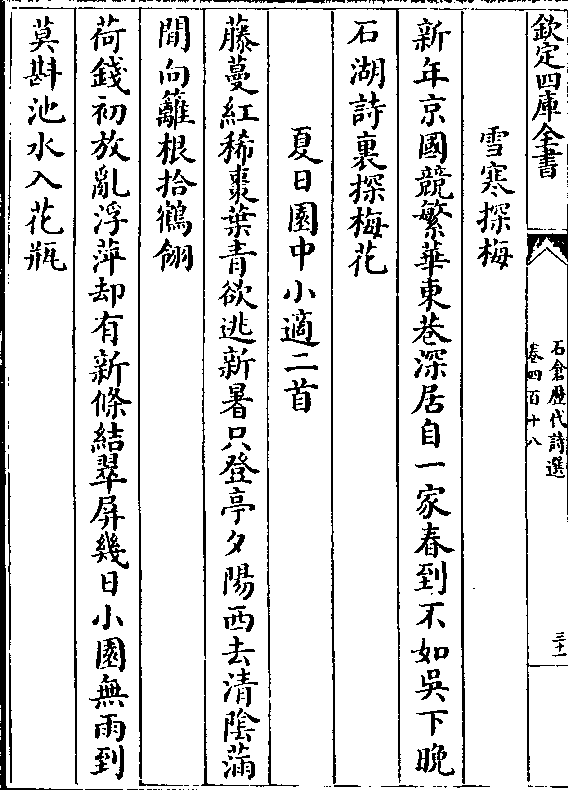 欽定四庫全書
石倉歷代詩選
卷四百十八
三十一
雪寒探梅
新年京國競繁華東巷深居自一家春到不如吳下晚
石湖詩裏探梅花
夏日園中小適二首
藤蔓紅稀棗葉青欲逃新暑只登亭夕陽西去清陰滿
閒向籬根拾鶴翎
荷錢初放亂浮萍却有新條結翠屏幾日小園無雨到
莫斟池水入花瓶